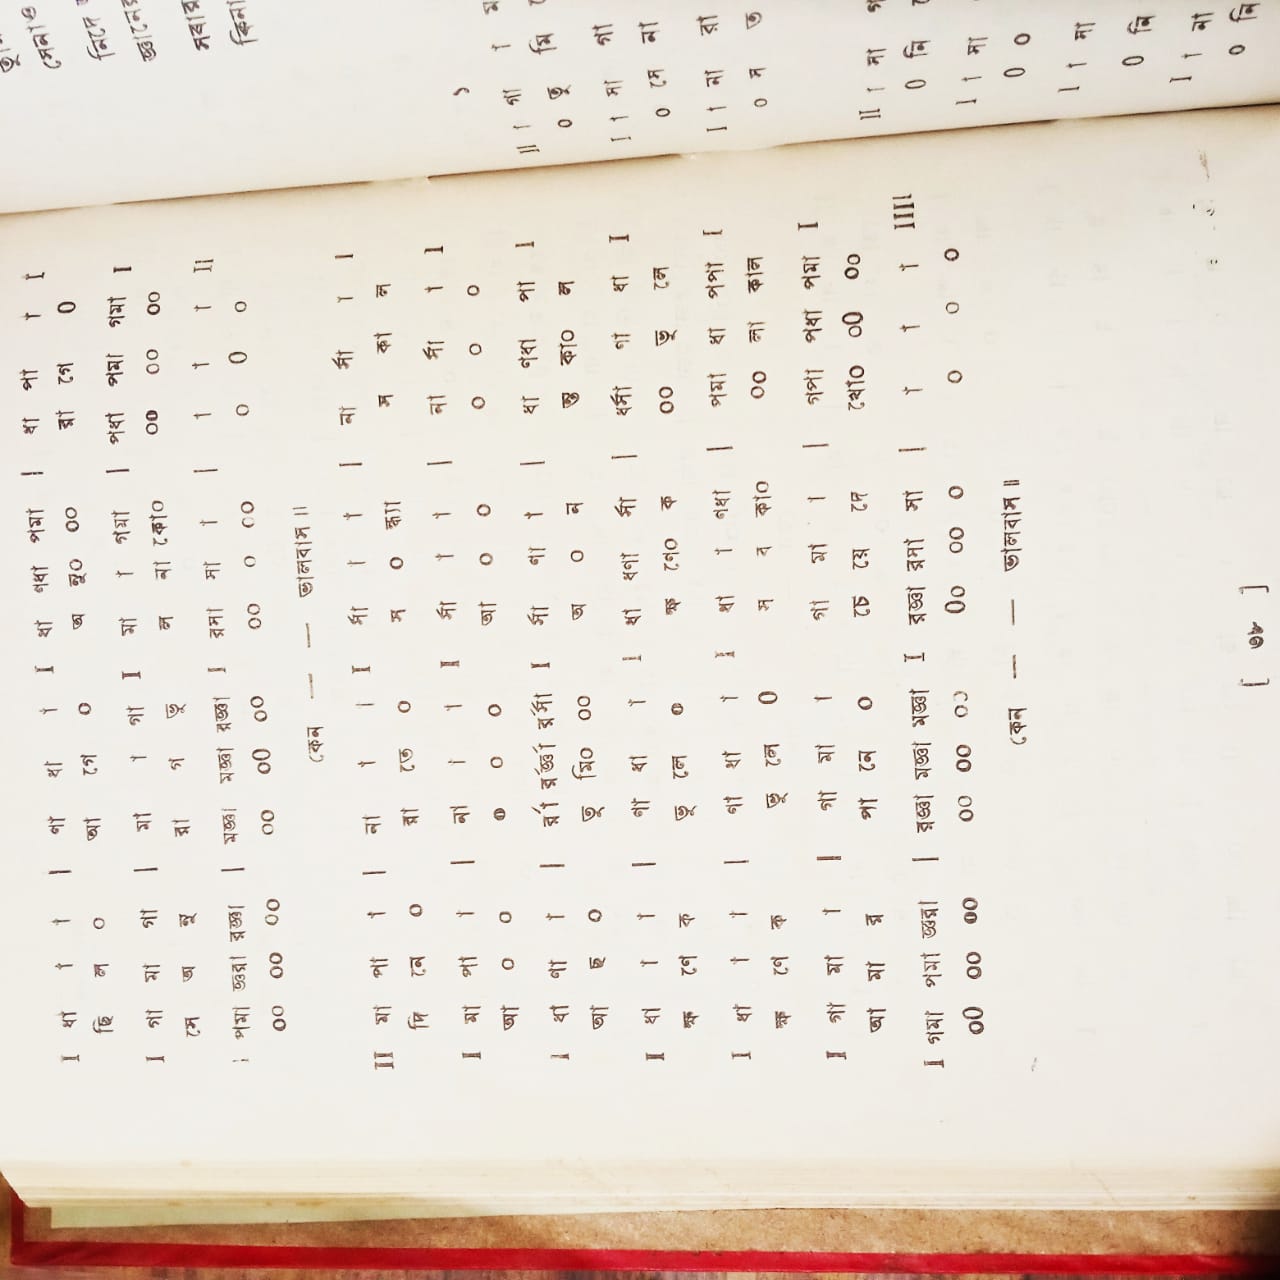 I ধা া া | ণা ধা া I ধা ণধা পমা | ধা পা া I
ছি ল ০ আ গে ০ অ নু০ ০০ রা গে ০
I গা মা গা | মা া গা I মা া গমা | পধা পমা গমা I
সে অ নু রা গ ভু ল না কো০ ০০ ০০ ০০
I পমা জ্ঞরা রজ্ঞা | মজ্ঞা মজ্ঞা রজ্ঞা I রসা সা া | া া া II
০০ ০০ ০০ ০০ ০০ ০০ ০০ ০ ০০ ০ ০ ০
কেন — — ভালবাস ॥
II মা পা া | না া া I র্সা া া | না র্সা া I
দি নে ০ রা তে ০ স ০ ন্ধ্যা স কা ল
I মা পা া | না া া I র্সা া া | না র্সা া I
আ ০ ০ ০ ০ ০ আ ০ ০ ০ ০ ০
I ধা ণা া | র্রা র্রর্জ্ঞা র্রর্সা I র্সা ণা া | ধা ণধা পা I
আ ছ ০ তু মি০ ০০ অ ০ ন ন্ত কা০ ল
I ধা া া | ণা ধা া I ধা ধণা র্সা | ধর্সা ণা ধা I
ক্ষ ণে ক ভু লে ০ ক্ষ ণে০ ক ০০ ভু লে
I ধা া া | ণা ধা া I ধা া ণধা | পমা ধা পপা I
ক্ষ ণে ক ভু লে ০ স ব কা০ ০০ লা কাল
I গা মা া | গা মা া I গা মা া | গপা পধা পমা I
আ মা র পা নে ০ চে য়ে দে খো০ ০০ ০০
I গমা পমা জ্ঞরা | রজ্ঞা মজ্ঞা মজ্ঞা I রজ্ঞা রসা সা | া া া IIII
০০ ০০ ০০ ০০ ০০ ০০ ০০ ০০ ০ ০ ০ ০
কেন — — ভালবাস ॥
[ ৩৮ ]